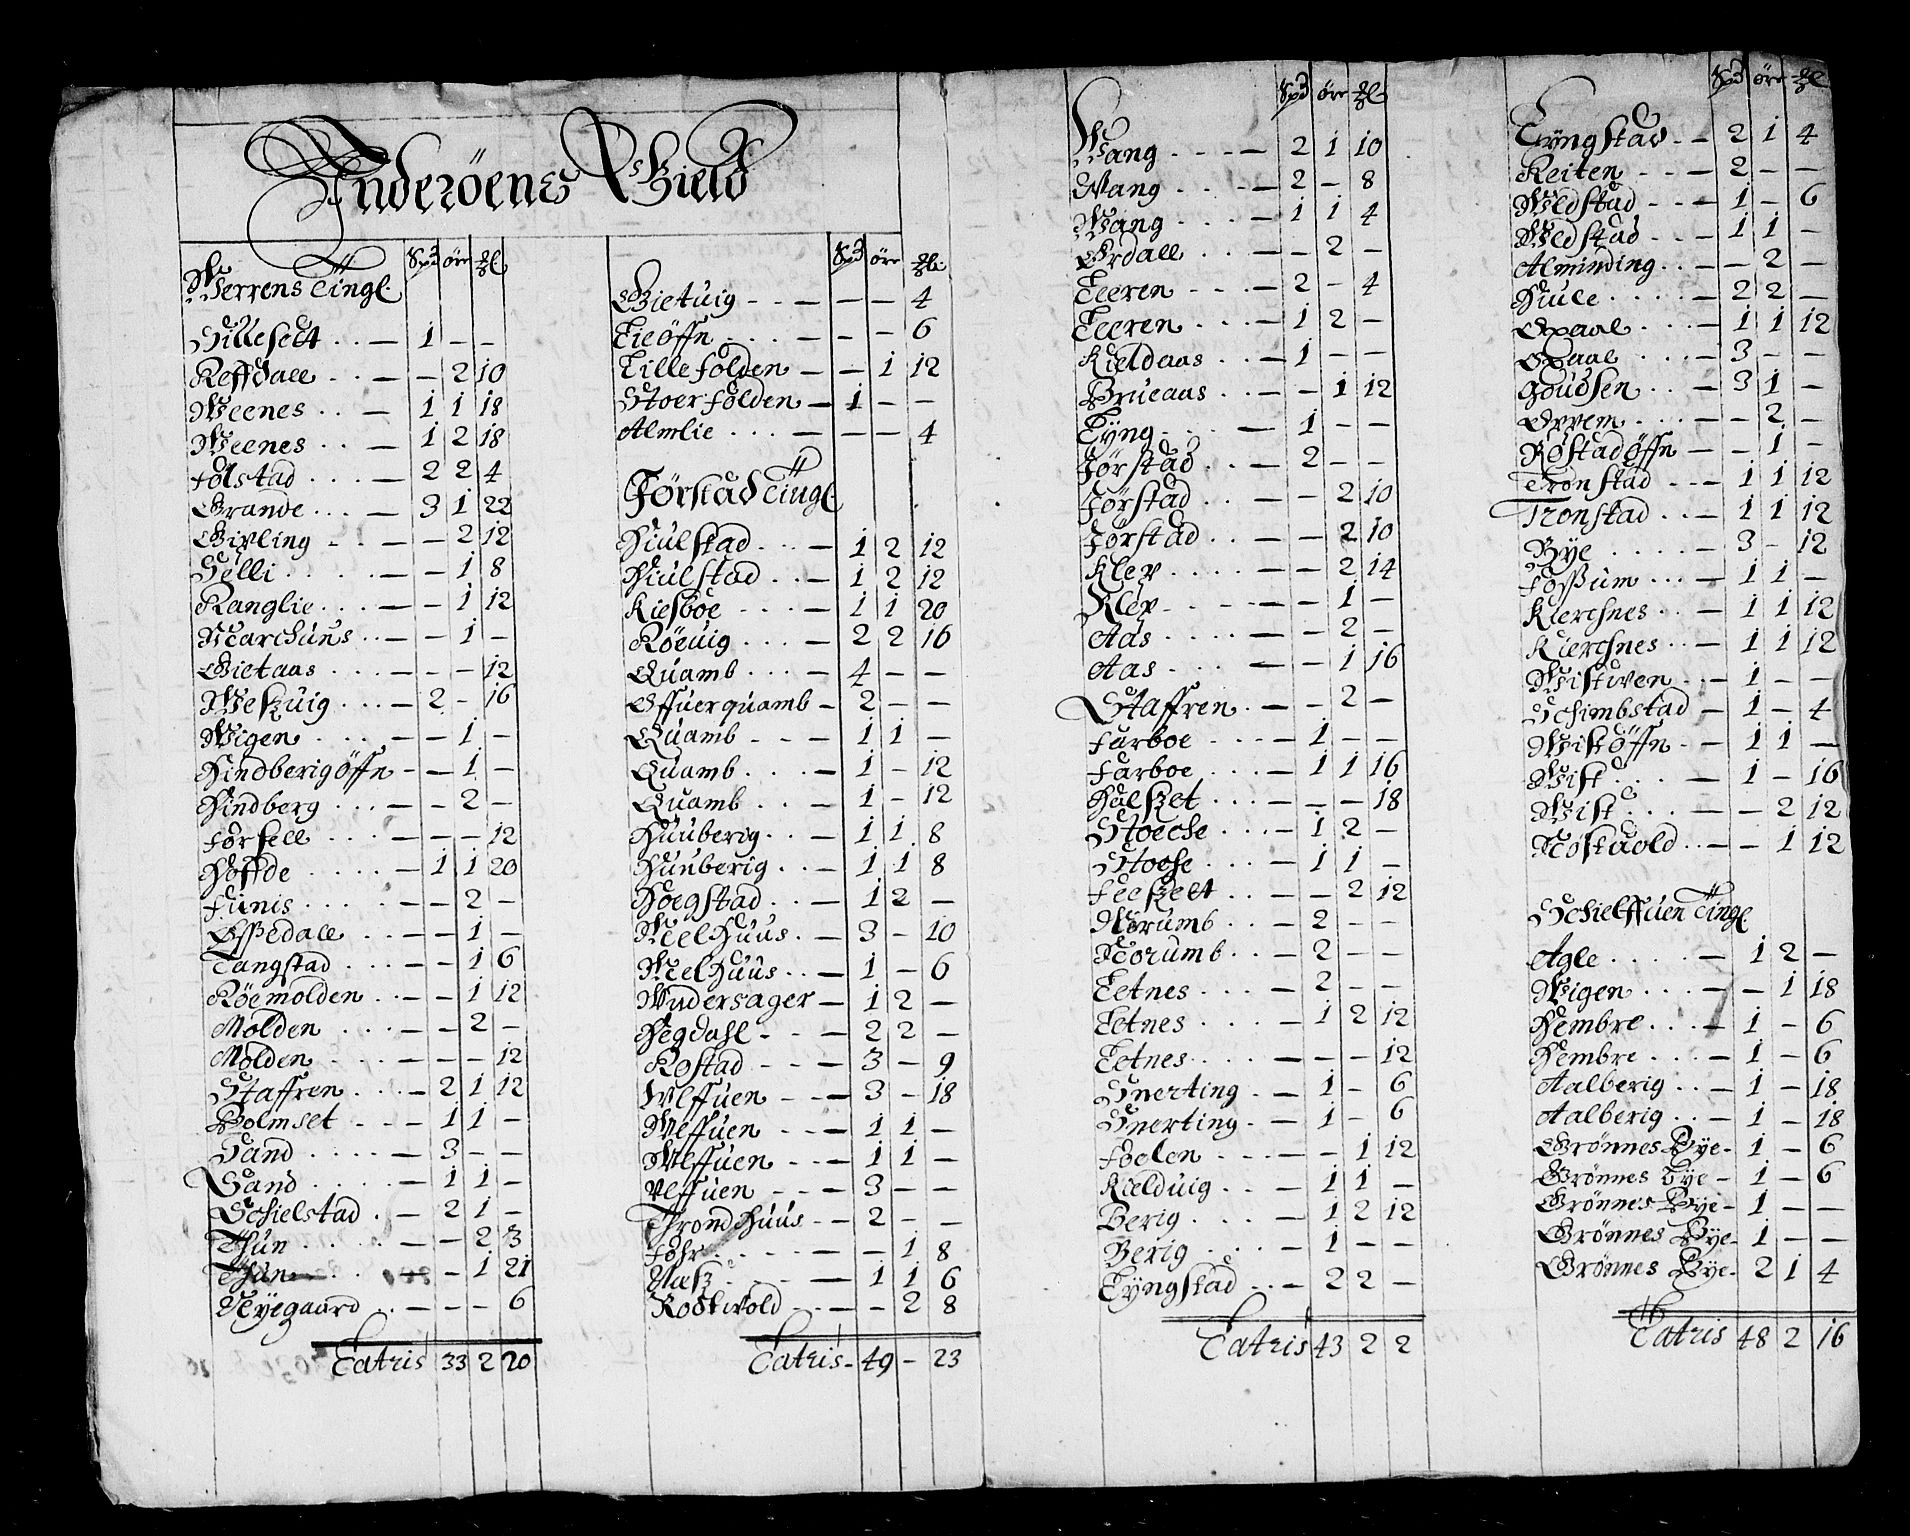 Inderöens Gield
Werrens Tingl.
Spd öre ℔l
Sillesett .. — 1 – –
Reffdall .. — – 2 10
Weenes .. — 1 1 18
Weenes .. — 1 2 18
Folstad ... — 2 2 4
Grande ... — 3 1 22
Girling - - — – 2 12
Selli .... — – 1 8
Ranglie ... — – 1 12
Marchuus .. — – 1 –
Gietaas ... — – – 12
Weszuig ... — 2 – 16
Wigen .... — – 1 –
Hindberigöffn - — 1 –
Hindberg ... — – 2 –
Forfell ... — – – 12
Hoffde .... — 1 1 20
Funis .... — – 2 –
Ossedall ... — – 1 –
Tangstad ... — – 1 6
Röemolden .. — – 1 12
Molden ... — – 2 –
Molden ... — – – 12
Staffren ... — 2 1 12
Holmset - - — 1 1 –
Sand .... — 3 – –
Sand .... — 1 1 –
Schielstad . — 2 1 –
Thun .... — – 2 3
Thun .... — – 1 21
Nyegaard .. — – – 6
Latris 33 2 20
Spd öre ℔l
Gietuig - - — – – 4
Lieöffn .. — – – 6
Lillefolden — – 1 12
Stoerfolden — 1 – –
Almlie ... — – – 4
Förstad Tingl.
Hiulstad ... — 1 2 12
Hiulstad .. — 1 2 12
Kiesboe ... — 1 1 20
Röeuig ... — 2 2 16
Quamb ... — 4 – –
Offuerquamb – 2 – –
Quamb - - — 1 1 –
Quamb ... — 1 – 12
Quamb .. — 1 – 12
Huuberig .. — 1 1 8
Hunberig .. — 1 1 8
Hoegstad .. — 1 2 –
Melhuus . — 3 – 10
Melhuus .. — 1 – 6
Wudersager — 1 2 –
Hegdahl - - — 2 2 –
Rostad - - — 3 – 9
Wlffuen - - — 3 – 18
Wlffuen - - — 1 1 –
Wlffuen - - — 1 1 –
Vlffuen - - — 3 – –
Thrond Huus - — 2 – –
Fohr .... — – 1 8
Næsz ... — 1 1 6
Rodtwold - - — – 2 8
Latris - 49 – 23
Spd öre ℔l
Wang .... — 2 1 10
Wang .... — 2 – 8
Wang .... — 1 1 4
Ordall .. — – 2 –
Leeren ... — 2 – 4
Leeren ... — 1 2 –
Kieldaas .. — 1 – –
Brueaas ... — – 1 12
Lyng ... — 1 – –
Jörstad .. — 2 – –
Jörstad .. — – 2 10
Jörstad .. — – 2 10
Klep .... — – 2 14
Klep .... — – 1 –
Aas .... — – 2 –
Aas .... — – 1 16
Staffren .. — – 2 –
Farboe ... — 1 – –
Farboe ... — 1 1 16
Halszet ... — – – 18
Stoche ... — 1 2 –
Stoche ... — 1 1 –
Feeszeet .. — – 2 12
Mörumb .. — 2 – –
Morumb .. — 2 – –
Letnes ... — 2 – –
Letnes ... — 1 2 12
Letnes ... — – – 12
Snerting . — 1 – 6
Snerting . — 1 – 6
Foolen ... — – 1 12
Kielduig .. — 1 1 –
Berig .... — 1 2 12
Berig .... — 1 – –
Lyngstad .. — 2 2 –
Latris 43 2 2
Spd öre ℔l
Lyngstad - - 2 1 4
Reiten - - — 2 – –
Weldstad - - — 1 – 6
Weldstad .. — 1 1 –
Alminding .. — – 2 –
Huule .... — 2 2 –
Opaal ... — 1 1 12
Opaal ... — 3 – –
Goudsen ... — 3 1 –
Orrem .... — – 2 –
Röstadöffn — – 1 –
Tronstad - - — 1 1 12
Tronstad .. — 1 1 12
Bye .... — 3 – 12
Fossum ... — 1 1 –
Kierchnes .. — 1 1 12
Kierchnes .. — 1 1 12
Wistwen .. — 1 – –
Schimbstad — 1 – 4
Wistöffn - — 1 1 –
Wist ... — 1 – 16
Wist ... — – 2 12
Roskuold .. — – 1 12
Schielffuen Tingl.
Agle .... — 1 2 –
Wigen ... — – 1 18
Hembre ... — 1 – 6
Hembre ... — 1 – 6
Aalberig .. — 1 – 18
Aalberig .. — 1 – 18
Grönnes Bye - 1 – 6
Grönnes Bye - 1 – 6
Grönnes Bye - 1 – –
Grönnes Bye - 1 – –
Grönnes Bye - 2 1 4
Latris 48 2 16